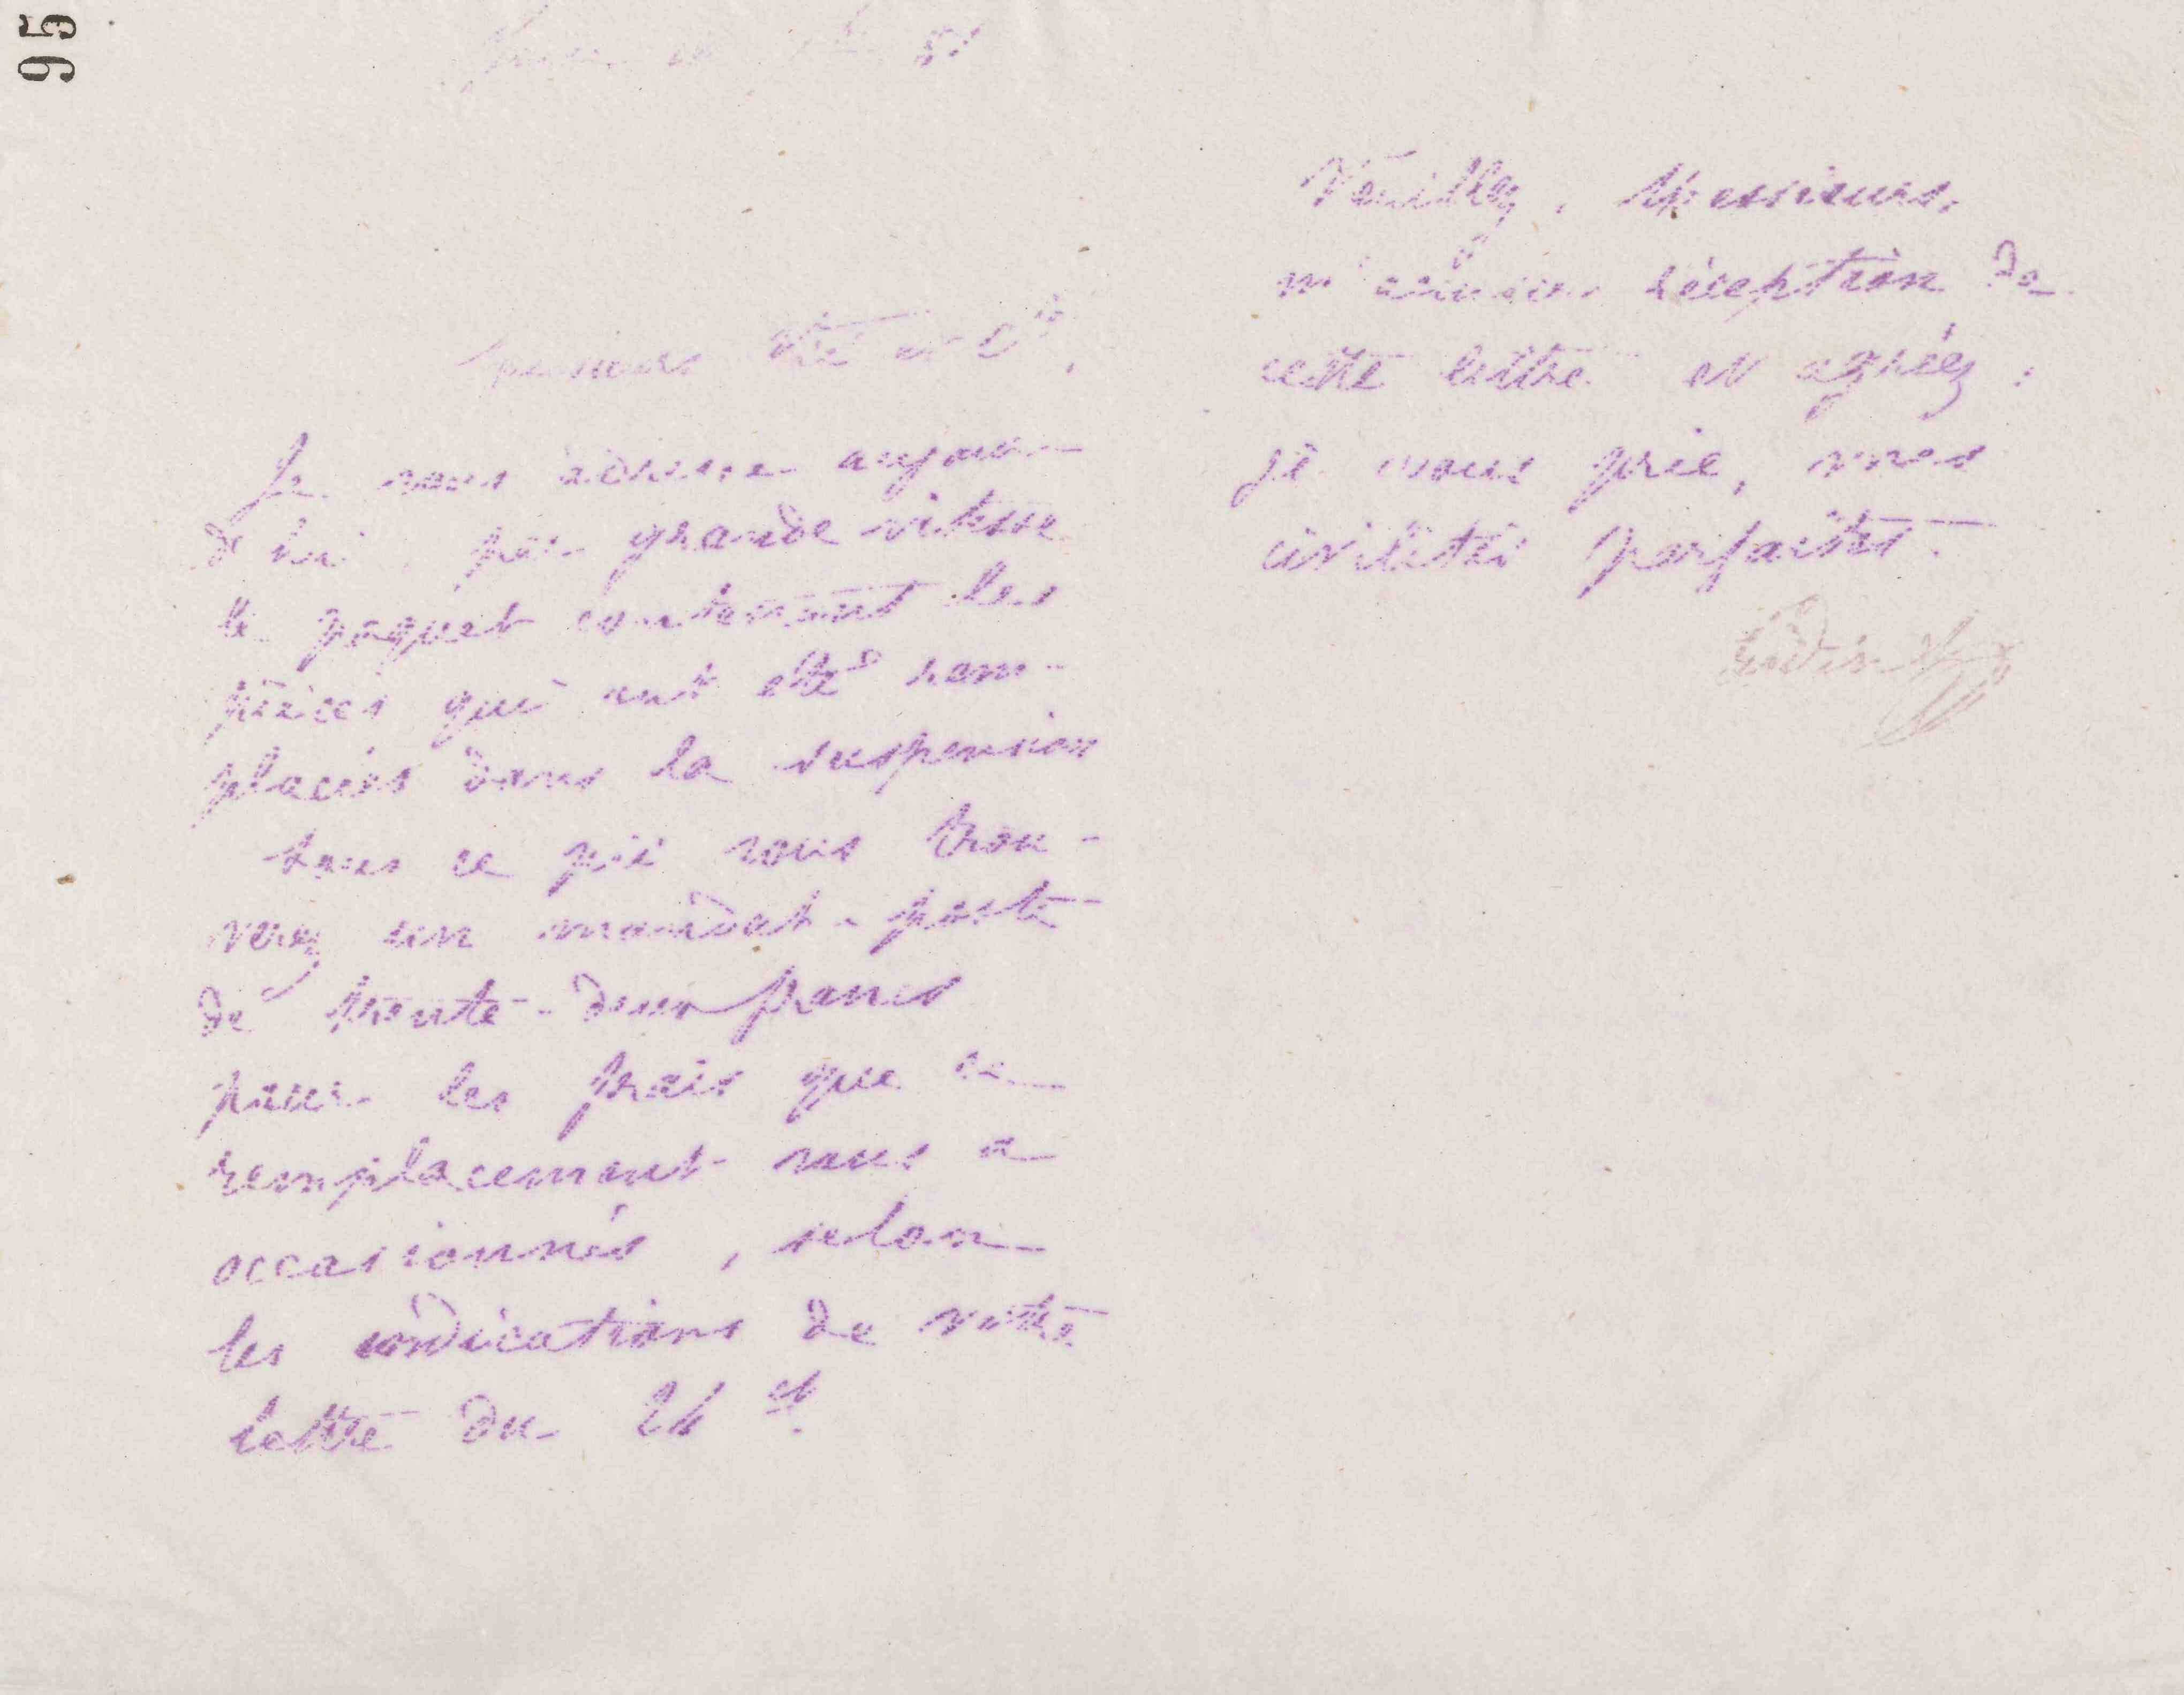 95
Messieurs et Cie,
Je vous adresse aujour-
d'hui par grande vitesse
le paquet contenant les
pièces qui ont été rem-
placées dans la suspension
sous ce pli vous trou-
verez un mandat-poste
de trente-deux francs
pour les frais que ce
remplacement vous a
occasionnés, selon
les indications de votre
lettre du 24 ct.
Veuillez, Messieurs,
m'accuser réception de
cette lettre et agréez,
je vous prie, mes
civilités parfaites.
Godin